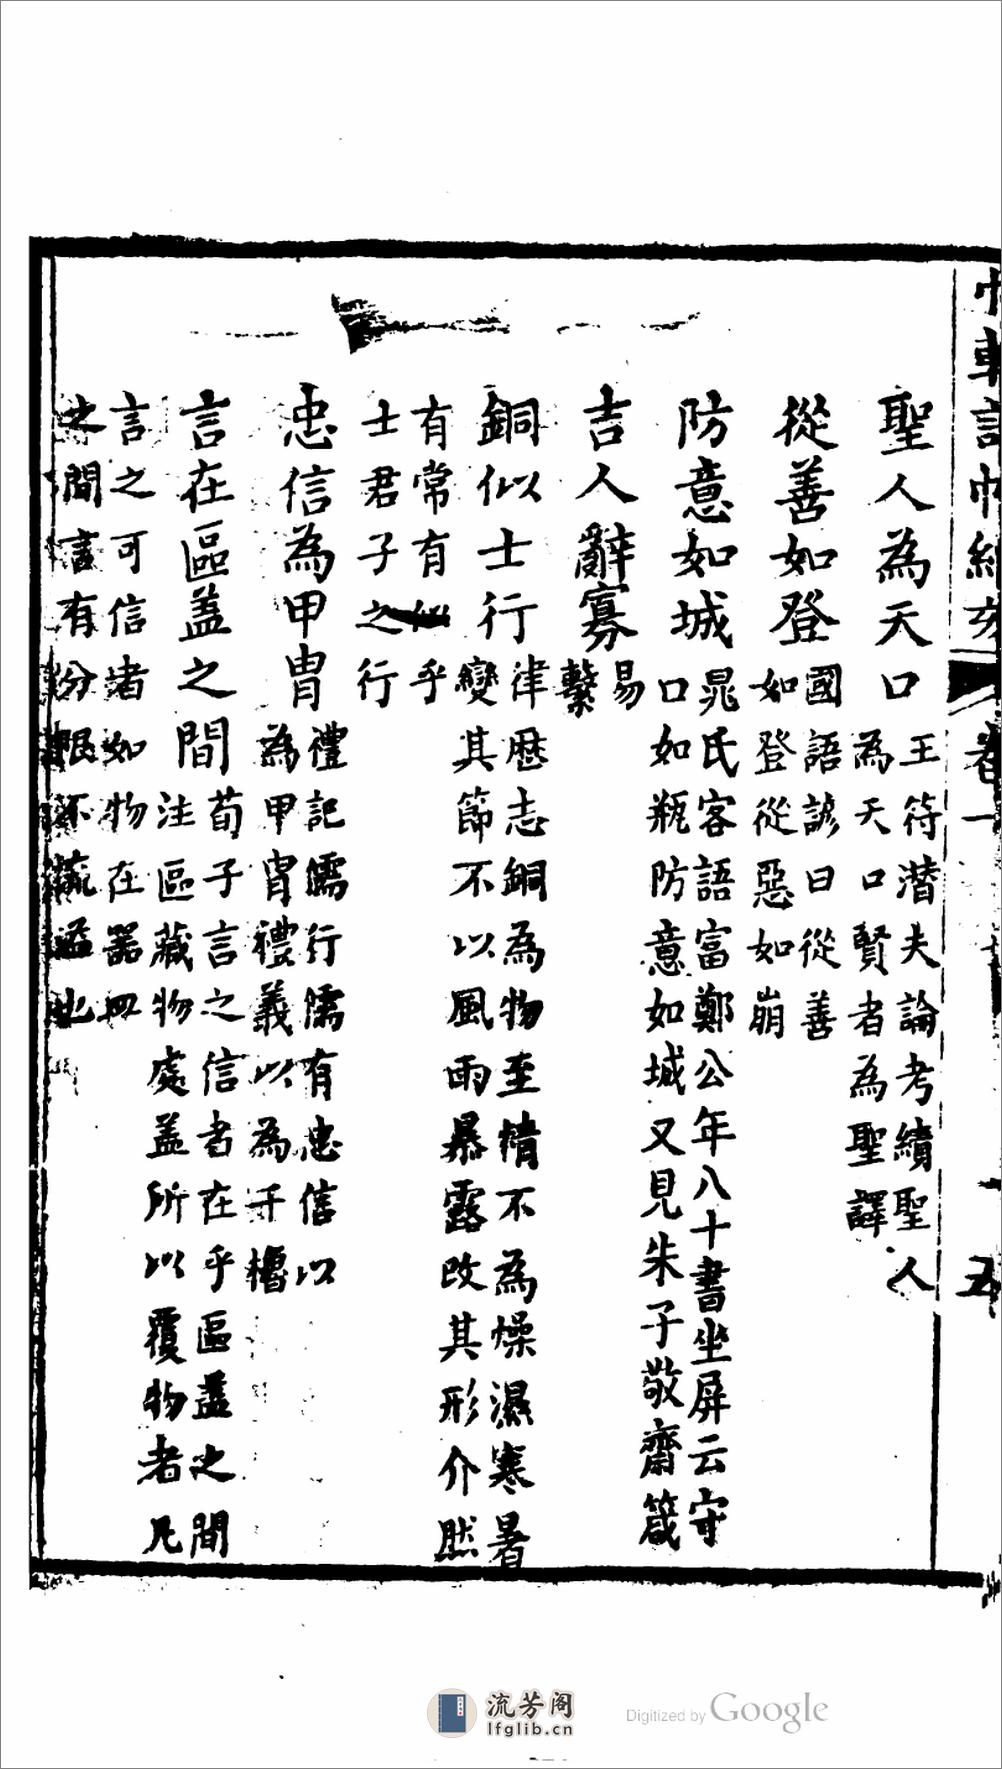 聖人為天口王符潛夫論考績聖人
為天口賢者為聖譯
從善如登國語諺曰從善
如登從惡如崩
防意如城晁氏客語富鄭公年八十書坐屏云守
口如瓶防意如城又見朱子敬齋箴
吉人辭寡易
繫
銅似士行律歴志銅為物至精不為燥濕寒暑
變其節不以風雨暴露改其形介然
有常有似乎
士君子之行
忠信為甲冑禮記儒行儒有忠信以
為甲冑禮義以為干櫓
言在區盖之間荀子言之信者在乎區盖之間
注區藏物處盖所以覆物者凡
言之可信諸如物在器皿
之間言有分限不流溢也
卷一
五
流芳阁
lfglib.cn
Digitized by Google